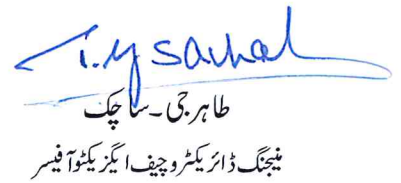 طاہر جی۔ساچک
منیجنگ ڈائریکٹر و چیف ایگزیکٹو آفیسر